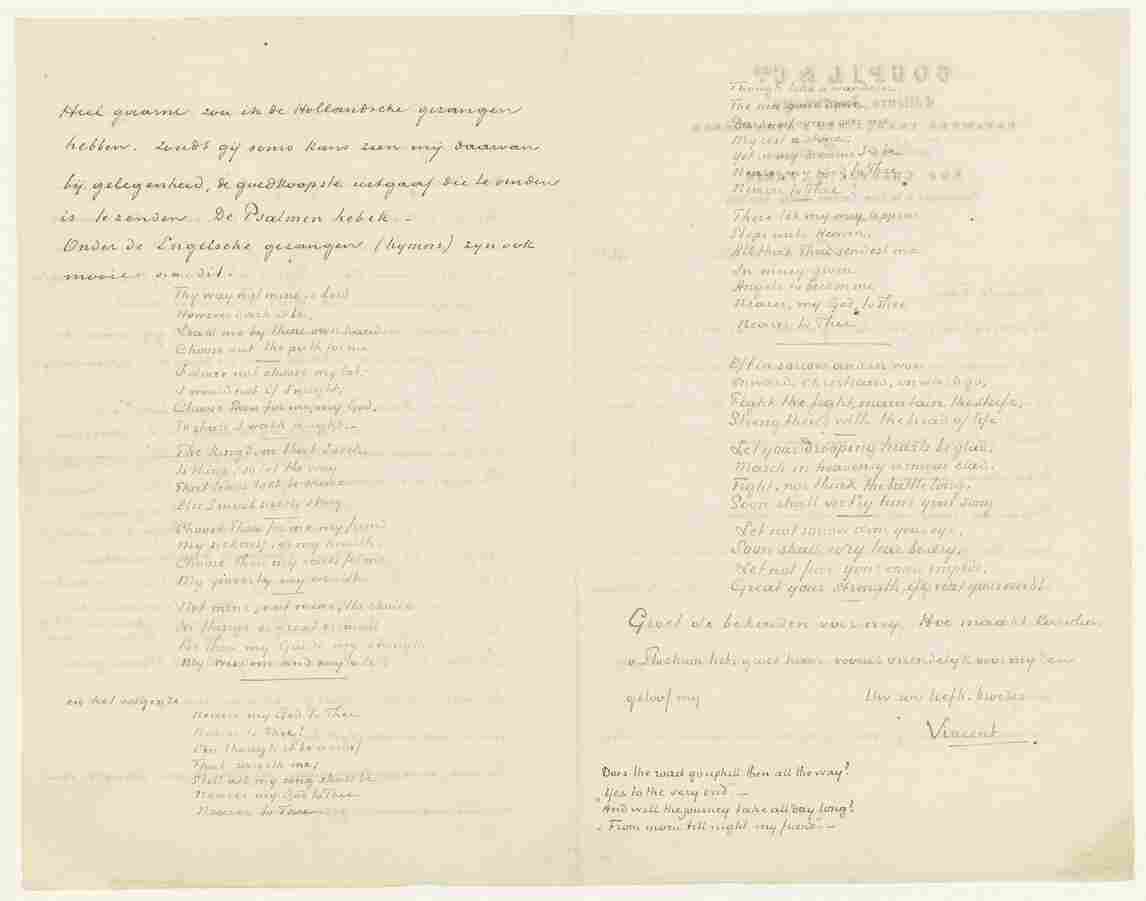 Heel gaarne zou ik de Hollandsche gezangen
hebben. Zoudt gij soms kans zien mij daarvan
bij gelegenheid, de goedkoopste uitgaaf die te vinden
is te zenden. De Psalmen heb ik. –
Onder de Engelsche gezangen (hymns) zijn ook
mooie
Thy way not mine o Lord
However dark it be,
Lead me by thine own hand
Choose out the path for me
I dare not choose my lot.
I would not if I might,
Choose Thou for me, my God,
So shall I walk aright. –
The kingdom that I seek
Is thine, so let the way
That leads to it be thine
Else I must surely stray
Choose Thou for me my friend
My sickness, or my health.
Choose thou my cares for me
My poverty my wealth
Not mine, not mine, the choice
In things or great or small
Be thou my Guide my strength
My wisdom and my all
en het volgende
Nearer my God to Thee
Nearer to Thee!
E'en though it be a cross
That raiseth me,
Still all my song shall be
Nearer my God to Thee
Nearer to Thee
GOUPIL & Cie
Though like a wanderer
The sun gone down
Darkness over me
My rest a stone
Yet in my dreams I'd be
Nearer, my God, to Thee
Nearer to Thee!
There let my way appear
Steps unto Heaven.
All that Thou sendest me
In mercy given
Angels to beckon me
Nearer, my God, to Thee
Nearer to Thee.
Oft in sorrow oft in woe
Onward, Christians, onward go,
Fight the fight, maintain the strife,
Strengthened with the bread of life
Let your drooping hearts be glad,
March in heavenly armour clad.
Fight, nor think the battle long,
Soon shall victory tune your song
Let not sorrow dim your eye,
Soon shall every tear be dry,
Let not fear your course impede,
Great your strength, if great your need!
Groet de bekenden voor mij. Hoe maakt Caroline
v. Stockum het, groet haar vooral vriendelijk voor mij en
geloof mij Uw zoo liefh. broeder
Vincent
Does the road go uphill then all the way?
Yes to the very end –
And will the journey take all day long?
From morn till night my friend. –